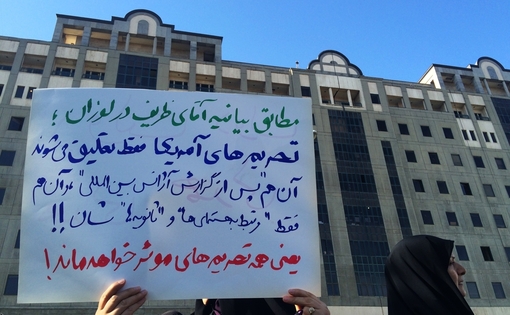 مطابق بیانیه آقای ظریف در لوزان ؛
تحریم های آمریکا فقط تعلیق می شوند
آن هم "پس از گزارش آژانس بین المللی" و آن هم
فقط "مرتبط با هسته ای ها" و "ثانویه ها" شان !!
یعنی همه تحریم های موثر خواهد ماند !